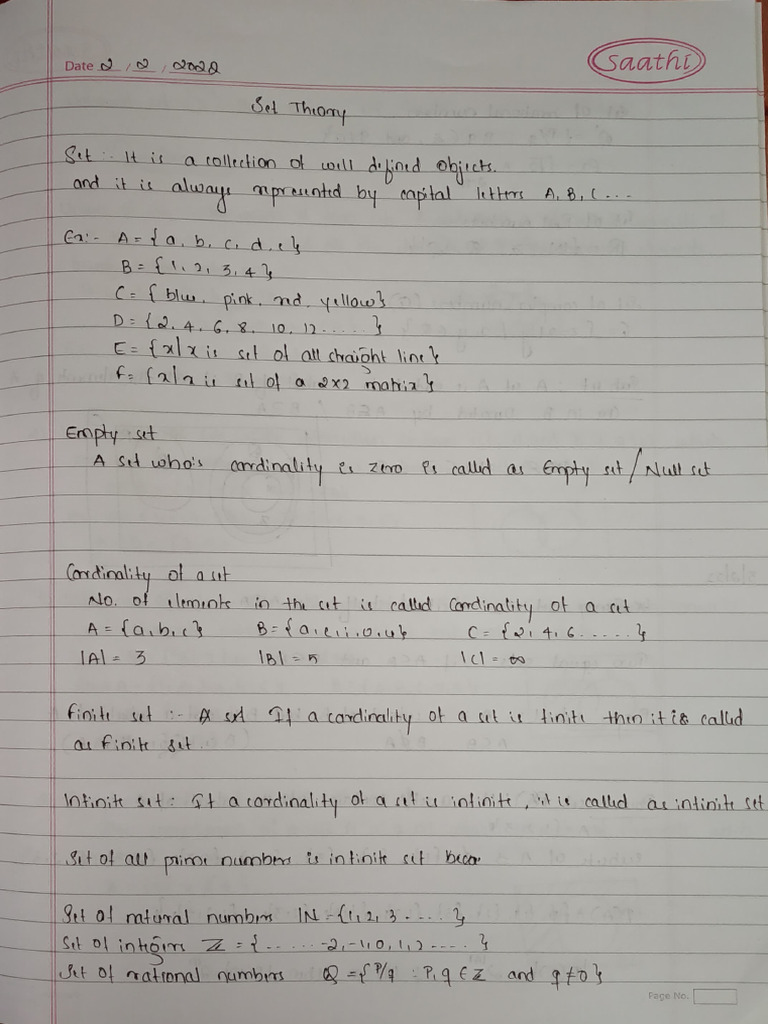 Date 2 / 2 / 2022
Saathi
Set Theory
Set :- It is a collection of well defined objects.
and it is always represented by capital letters A, B, C ...
Ex:- A = {a, b, c, d, e}
B = {1, 2, 3, 4}
C = { blue, pink, red, yellow}
D = {2, 4, 6, 8, 10, 12 ..... }
E = {x|x is set of all straight line}
F = {x|x is set of a 2x2 matrix}
Empty set
A set who's cardinality is zero is called as Empty set / Null set
Cardinality of a set
No. of elements in the set is called Cardinality of a set
A = {a, b, c} B = {a, e, i, o, u} C = {2, 4, 6 ...... }
|A| = 3 |B| = 5 |C| = ∞
Finite set :- A set If a cardinality of a set is finite then it is called
as finite set.
Infinite set : If a cardinality of a set is infinite, it is called as infinite set
Set of all prime numbers is infinite set becor
Set of natural numbers IN = {1, 2, 3 ..... }
Set of integers Z = { ...... -2, -1, 0, 1, 2 ..... }
Set of rational numbers Q = { P/q : P, q ∈ Z and q ≠ 0 }
Page No.